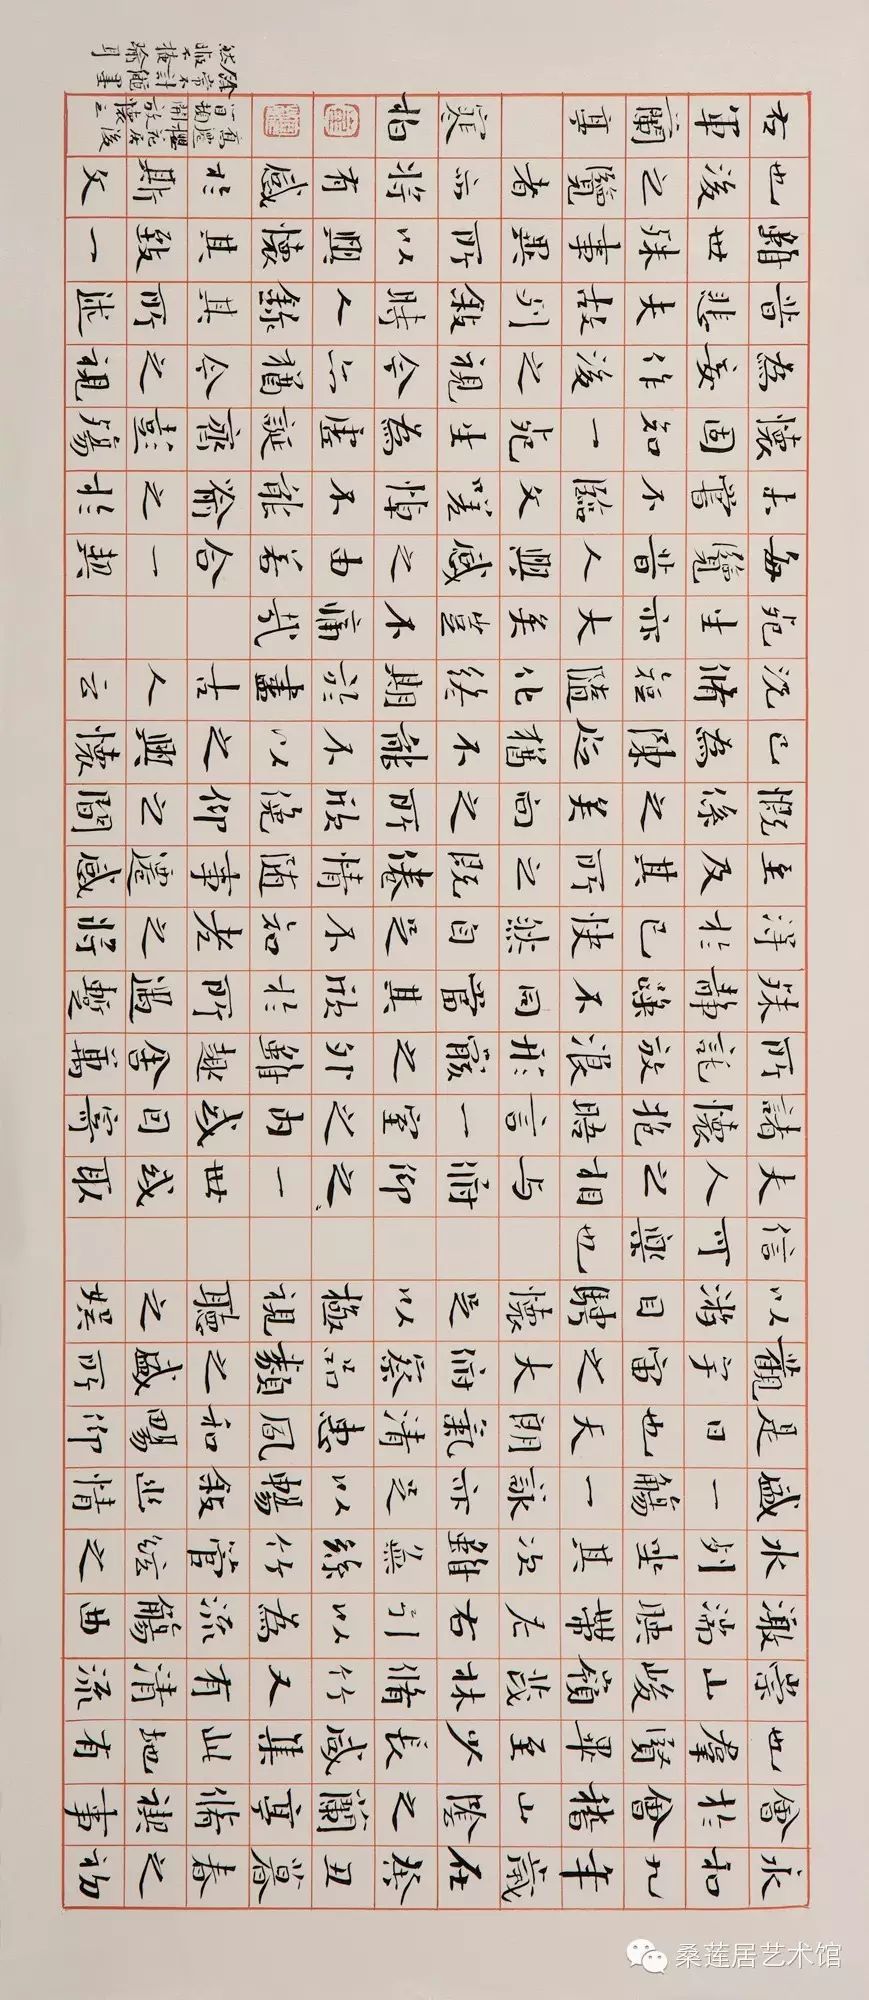 永和九年歲在癸丑暮春之初
會於會稽山陰之蘭亭脩禊事
也羣賢畢至少長咸集此地有
崇山峻嶺茂林脩竹又有清流
激湍映帶左右引以為流觴曲
水列坐其次雖無絲竹管絃之
盛一觴一詠亦足以暢敘幽情
是日也天朗氣清惠風和暢仰
觀宇宙之大俯察品類之盛所
以游目騁懷足以極視聽之娛
信可樂也
夫人之相与俯仰之一世或取
諸懷抱晤言一室之内或因寄
所託放浪形骸之外雖趣舍萬
殊靜躁不同當其欣於所遇暫
得於己快然自足不知老之將
至及其所之既倦情隨事遷感
慨係之矣向之所欣俛仰之間
已為陳迹猶不能不以之興懷
況脩短隨化終期於盡古人云
死生亦大矣豈不痛哉
每覽昔人興感之由若合一契
未嘗不臨文嗟悼不能喻之於
懷固知一死生為虛誕齊彭殤
為妄作後之視今亦猶今之視
昔悲夫故列敘時人錄其所述
雖世殊事異所以興懷其致一
也後之覽者亦將有感於斯文
右軍蘭亭
桑莲居艺术馆